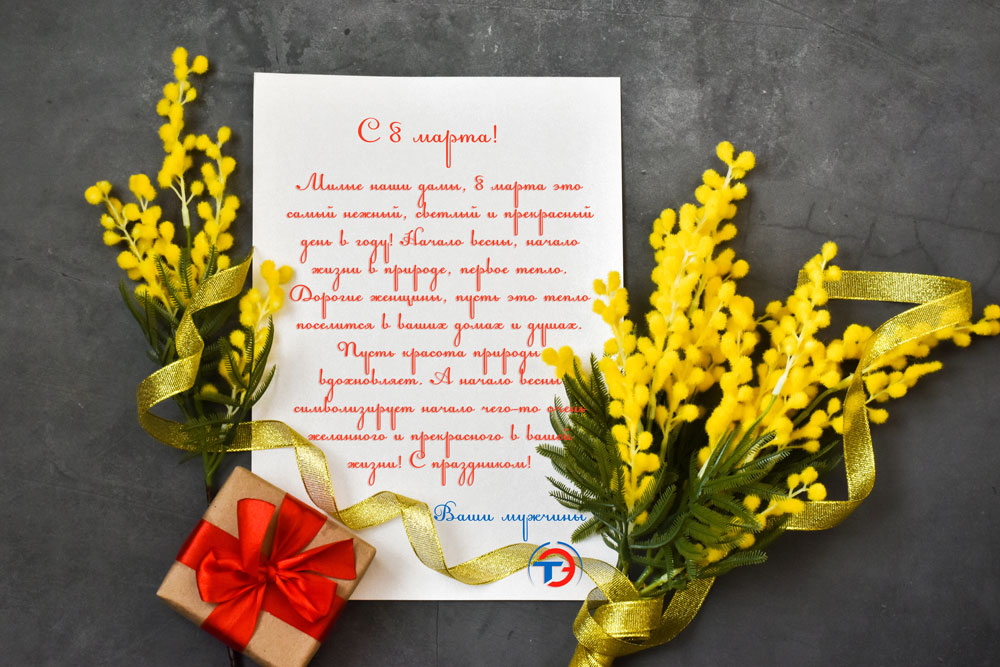 С 8 марта!
Милые наши дамы, 8 марта это
самый нежный, светлый и прекрасный
день в году! Начало весны, начало
жизни в природе, первое тепло.
Дорогие женщины, пусть это тепло
поселится в ваших домах и душах.
Пусть красота природы
вдохновляет. А начало весны
символизирует начало чего-то очень
желанного и прекрасного в вашей
жизни! С праздником!
Ваши мужчины
ТЭ